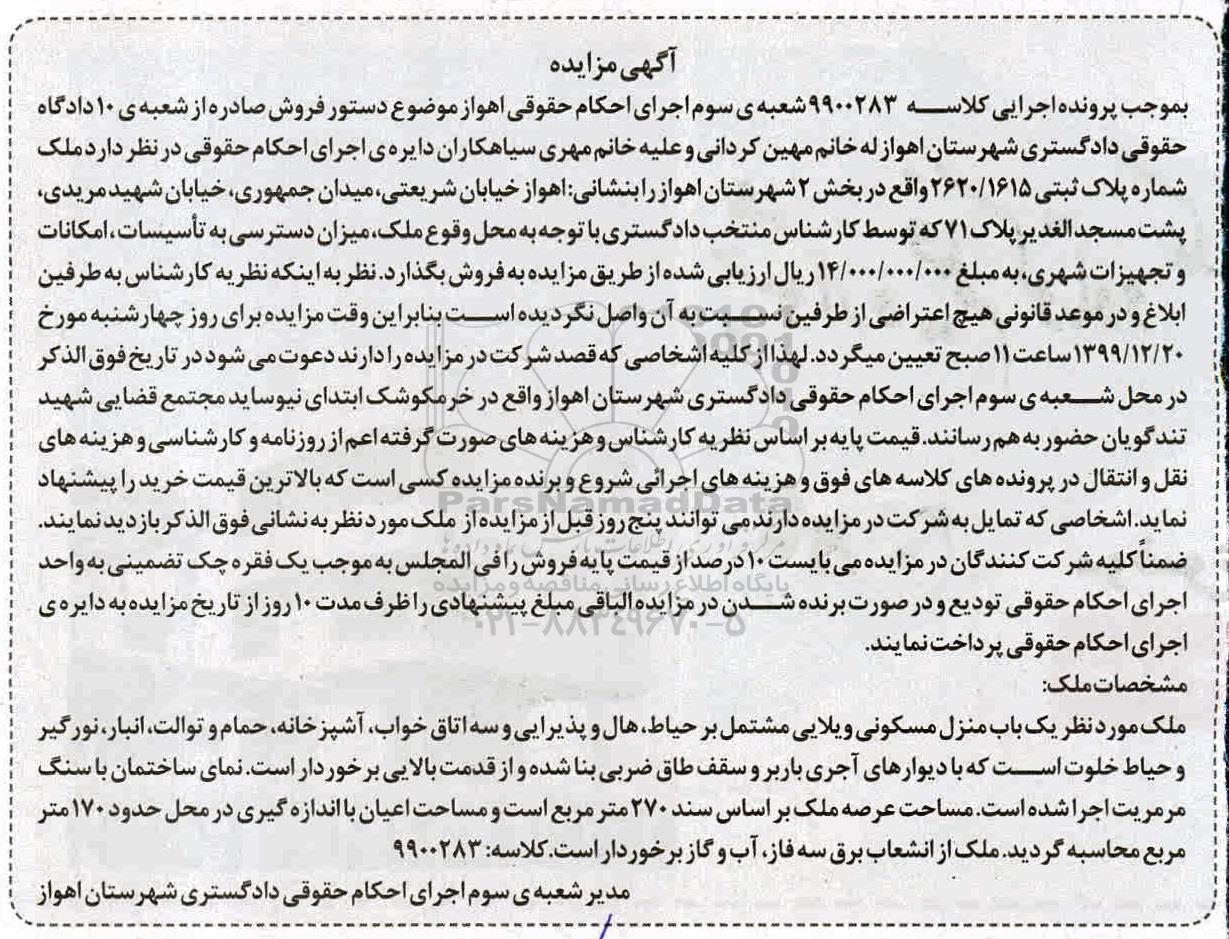 آگهی مزایده
بموجب پرونده اجرایی کلاسه ۹۹۰۰۲۸۳ شعبه ی سوم اجرای احکام حقوقی اهواز موضوع دستور فروش صادره از شعبه ی ۱۰ دادگاه
حقوقی دادگستری شهرستان اهواز له خانم مهین کردانی و علیه خانم مهری سیاهکاران دایره ی اجرای احکام حقوقی در نظر دارد ملک
شماره پلاک ثبتی ۲۶۲۰/۱۶۱۵ واقع در بخش ۲ شهرستان اهواز را بنشانی: اهواز خیابان شریعتی، میدان جمهوری، خیابان شهید مریدی،
پشت مسجد الغدیر پلاک ۷۱ که توسط کارشناس منتخب دادگستری با توجه به محل وقوع ملک، میزان دسترسی به تأسیسات، امکانات
و تجهیزات شهری، به مبلغ ۱۴/۰۰۰/۰۰۰/۰۰۰ ریال ارزیابی شده از طریق مزایده به فروش بگذارد. نظر به اینکه نظریه کارشناس به طرفین
ابلاغ و در موعد قانونی هیچ اعتراضی از طرفین نسبت به آن واصل نگردیده است بنابراین وقت مزایده برای روز چهارشنبه مورخ
۱۳۹۹/۱۲/۲۰ ساعت ۱۱ صبح تعیین میگردد. لهذا از کلیه اشخاصی که قصد شرکت در مزایده را دارند دعوت می شود در تاریخ فوق الذکر
در محل شعبه ی سوم اجرای احکام حقوقی دادگستری شهرستان اهواز واقع در خرمکوشک ابتدای نیوساید مجتمع قضایی شهید
تندگویان حضور به هم رسانند. قیمت پایه بر اساس نظریه کارشناس و هزینه های صورت گرفته اعم از روزنامه و کارشناسی و هزینه های
نقل و انتقال در پرونده های کلاسه های فوق و هزینه های اجرائی شروع و برنده مزایده کسی است که بالاترین قیمت خرید را پیشنهاد
نماید. اشخاصی که تمایل به شرکت در مزایده دارند می توانند پنج روز قبل از مزایده از ملک مورد نظر به نشانی فوق الذکر بازدید نمایند.
ضمناً کلیه شرکت کنندگان در مزایده می بایست ۱۰ درصد از قیمت پایه فروش را فی المجلس به موجب یک فقره چک تضمینی به واحد
اجرای احکام حقوقی تودیع و در صورت برنده شدن در مزایده الباقی مبلغ پیشنهادی را ظرف مدت ۱۰ روز از تاریخ مزایده به دایره ی
اجرای احکام حقوقی پرداخت نمایند.
مشخصات ملک:
ملک مورد نظر یک باب منزل مسکونی ویلایی مشتمل بر حیاط، هال و پذیرایی و سه اتاق خواب، آشپزخانه، حمام و توالت، انبار، نورگیر
و حیاط خلوت است که با دیوارهای آجری باربر و سقف طاق ضربی بنا شده و از قدمت بالایی برخوردار است. نمای ساختمان با سنگ
مرمریت اجرا شده است. مساحت عرصه ملک بر اساس سند ۲۷۰ متر مربع است و مساحت اعیان با اندازه گیری در محل حدود ۱۷۰ متر
مربع محاسبه گردید. ملک از انشعاب برق سه فاز، آب و گاز برخوردار است. کلاسه: ۹۹۰۰۲۸۳
مدیر شعبه ی سوم اجرای احکام حقوقی دادگستری شهرستان اهواز
ParsNamadData
پایگاه اطلاع رسانی مناقصه و مزایده
۰۲۱-۸۸۳۴۹۶۷۰-۵